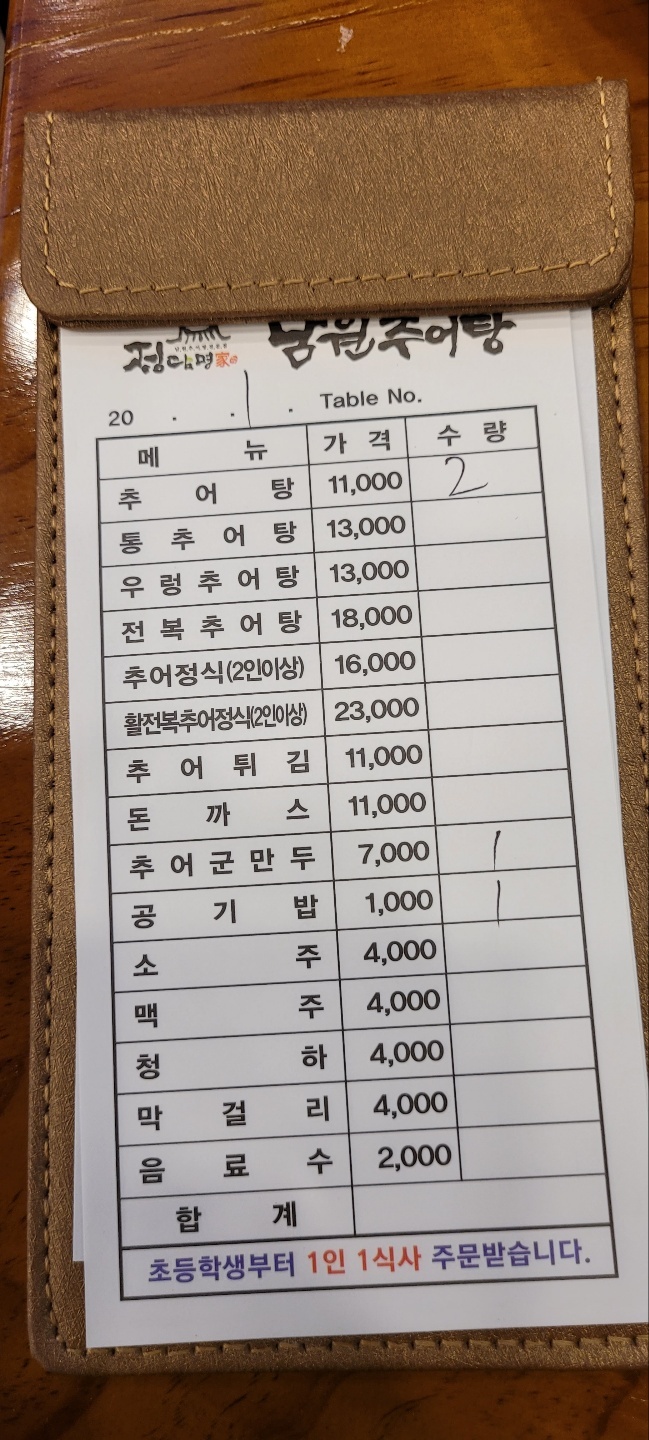 정담명家 남원추어탕
20 . . 1 . Table No.
메 뉴 가 격 수 량
추 어 탕 11,000 2
통 추 어 탕 13,000
우 렁 추 어 탕 13,000
전 복 추 어 탕 18,000
추어정식(2인이상) 16,000
활전복추어정식(2인이상) 23,000
추 어 튀 김 11,000
돈 까 스 11,000
추 어 군 만 두 7,000 1
공 기 밥 1,000 1
소 주 4,000
맥 주 4,000
청 하 4,000
막 걸 리 4,000
음 료 수 2,000
합 계
초등학생부터 1인 1식사 주문받습니다.